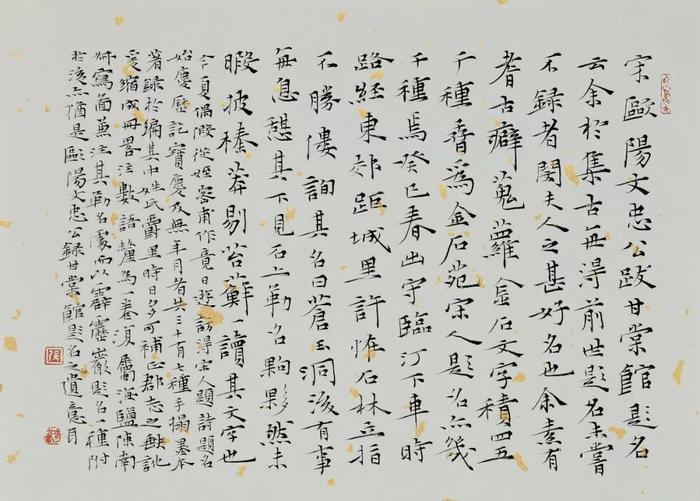 宋歐陽文忠公跋甘棠館題名
云余於集古每得前世題名未嘗
不錄者閔夫人之甚好名也余素有
耆古癖蒐羅金石文字積四五
千種香為金石苑宋人題名亦幾
千種焉癸巳春出守臨汀下車時
路經東郊距城里許怪石林立指
不勝僂詢其名曰蒼玉洞後有事
每息憩其下見石上勒名夥夥然未
暇披榛莽剔苔蘚一讀其文字也
今夏偶假從姪容甫作竟日遊訪得宋人題詩題名
始慶歷記寶慶及無年月者共三十有七種手搨墨本
著錄於編其中姓氏爵里時日多可補正郡志之缺訛
爰縮成冊畧注數語釐為一卷復屬海鹽陳南
叔寫圖兼注其勒名處而以霹靂巖題名一種附
於後亦猶是歐陽文忠公錄甘棠館題名之遺意耳